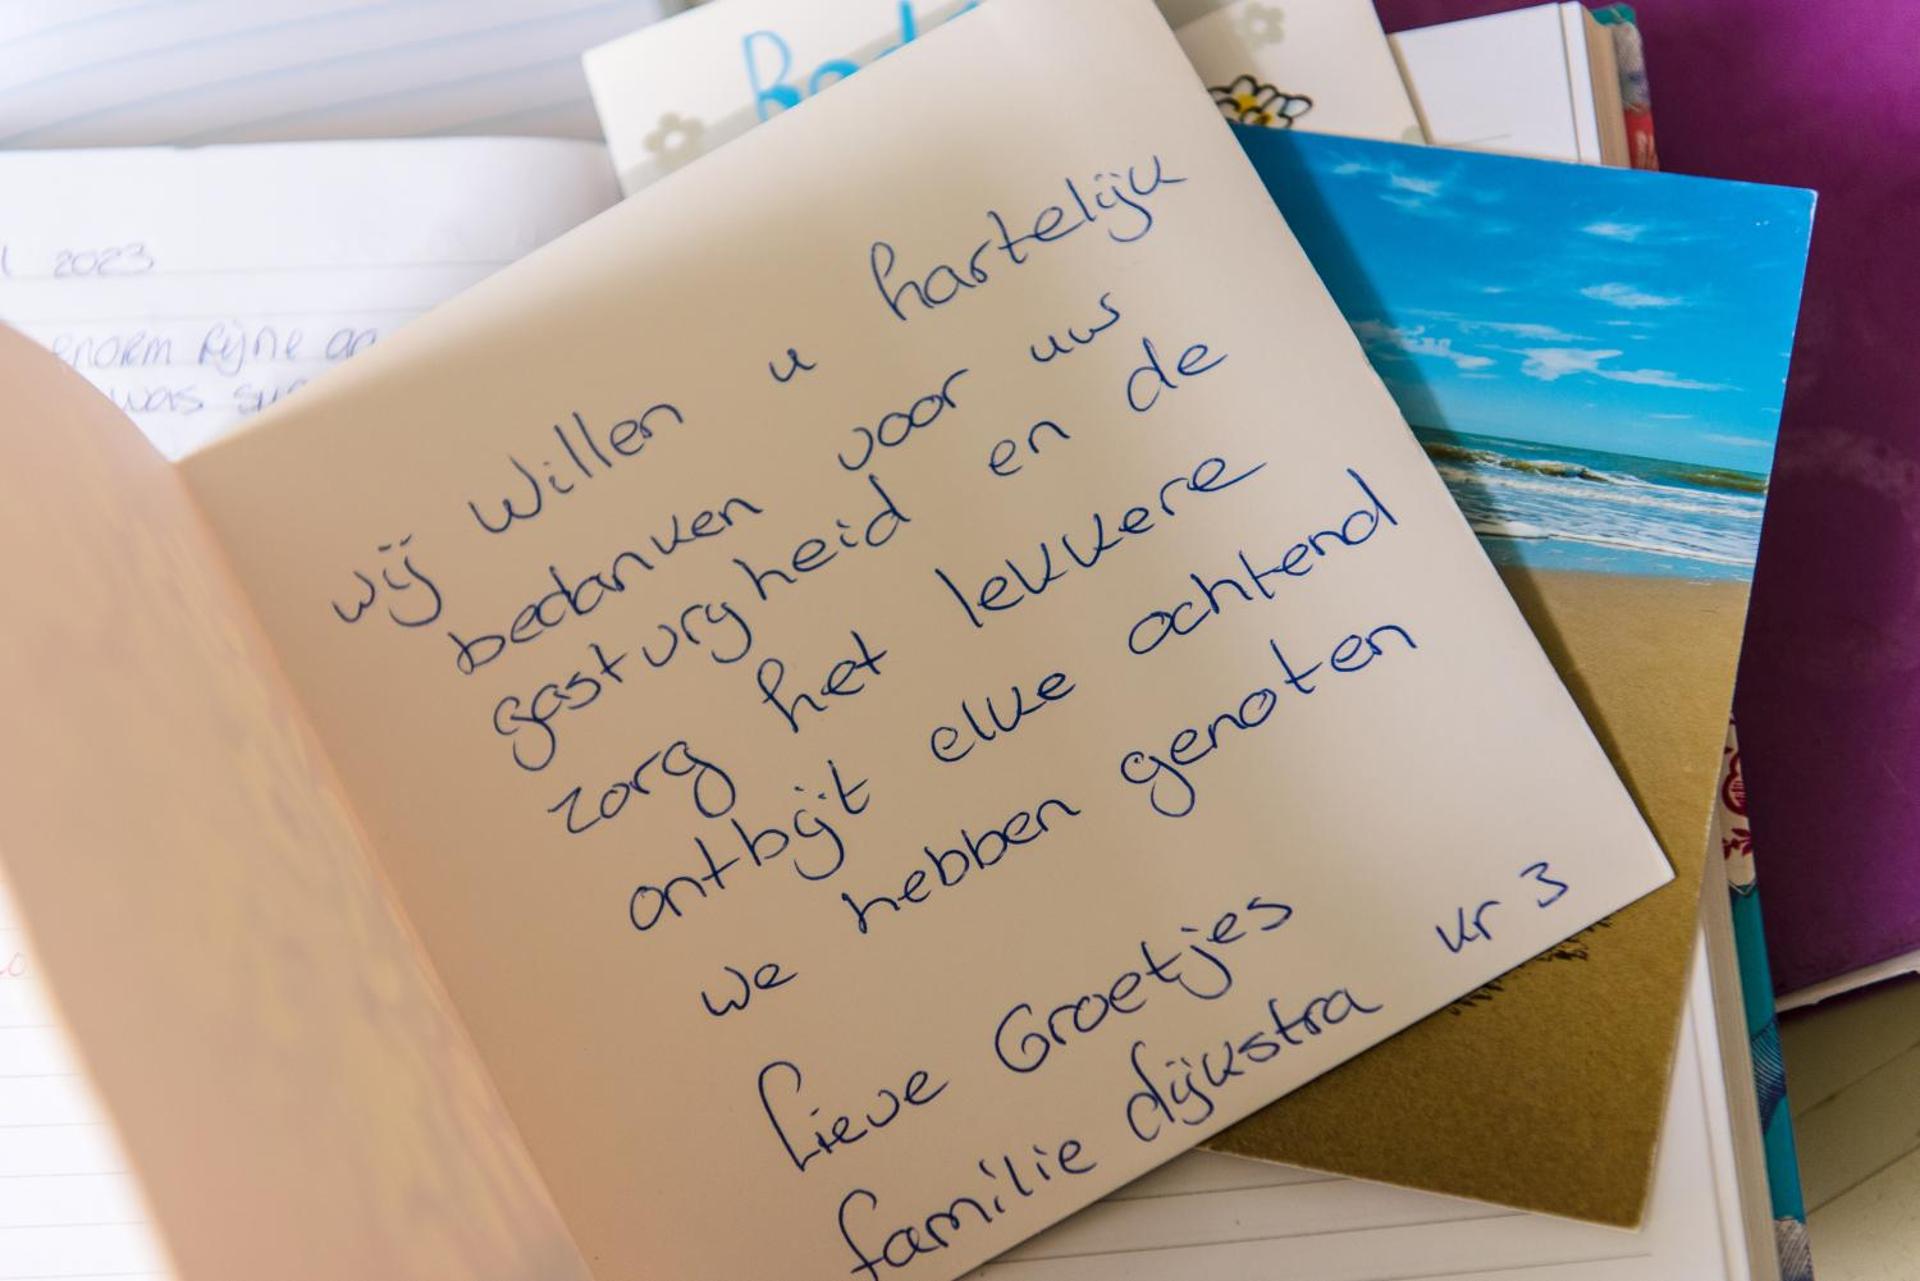 2023
enorm fijne
was
wij willen u hartelijk
bedanken voor uw
gastvryheid en de
zorg het lekkere
ontbijt elke ochtend
we hebben genoten
Lieve Groetjes
familie dijkstra kr 3